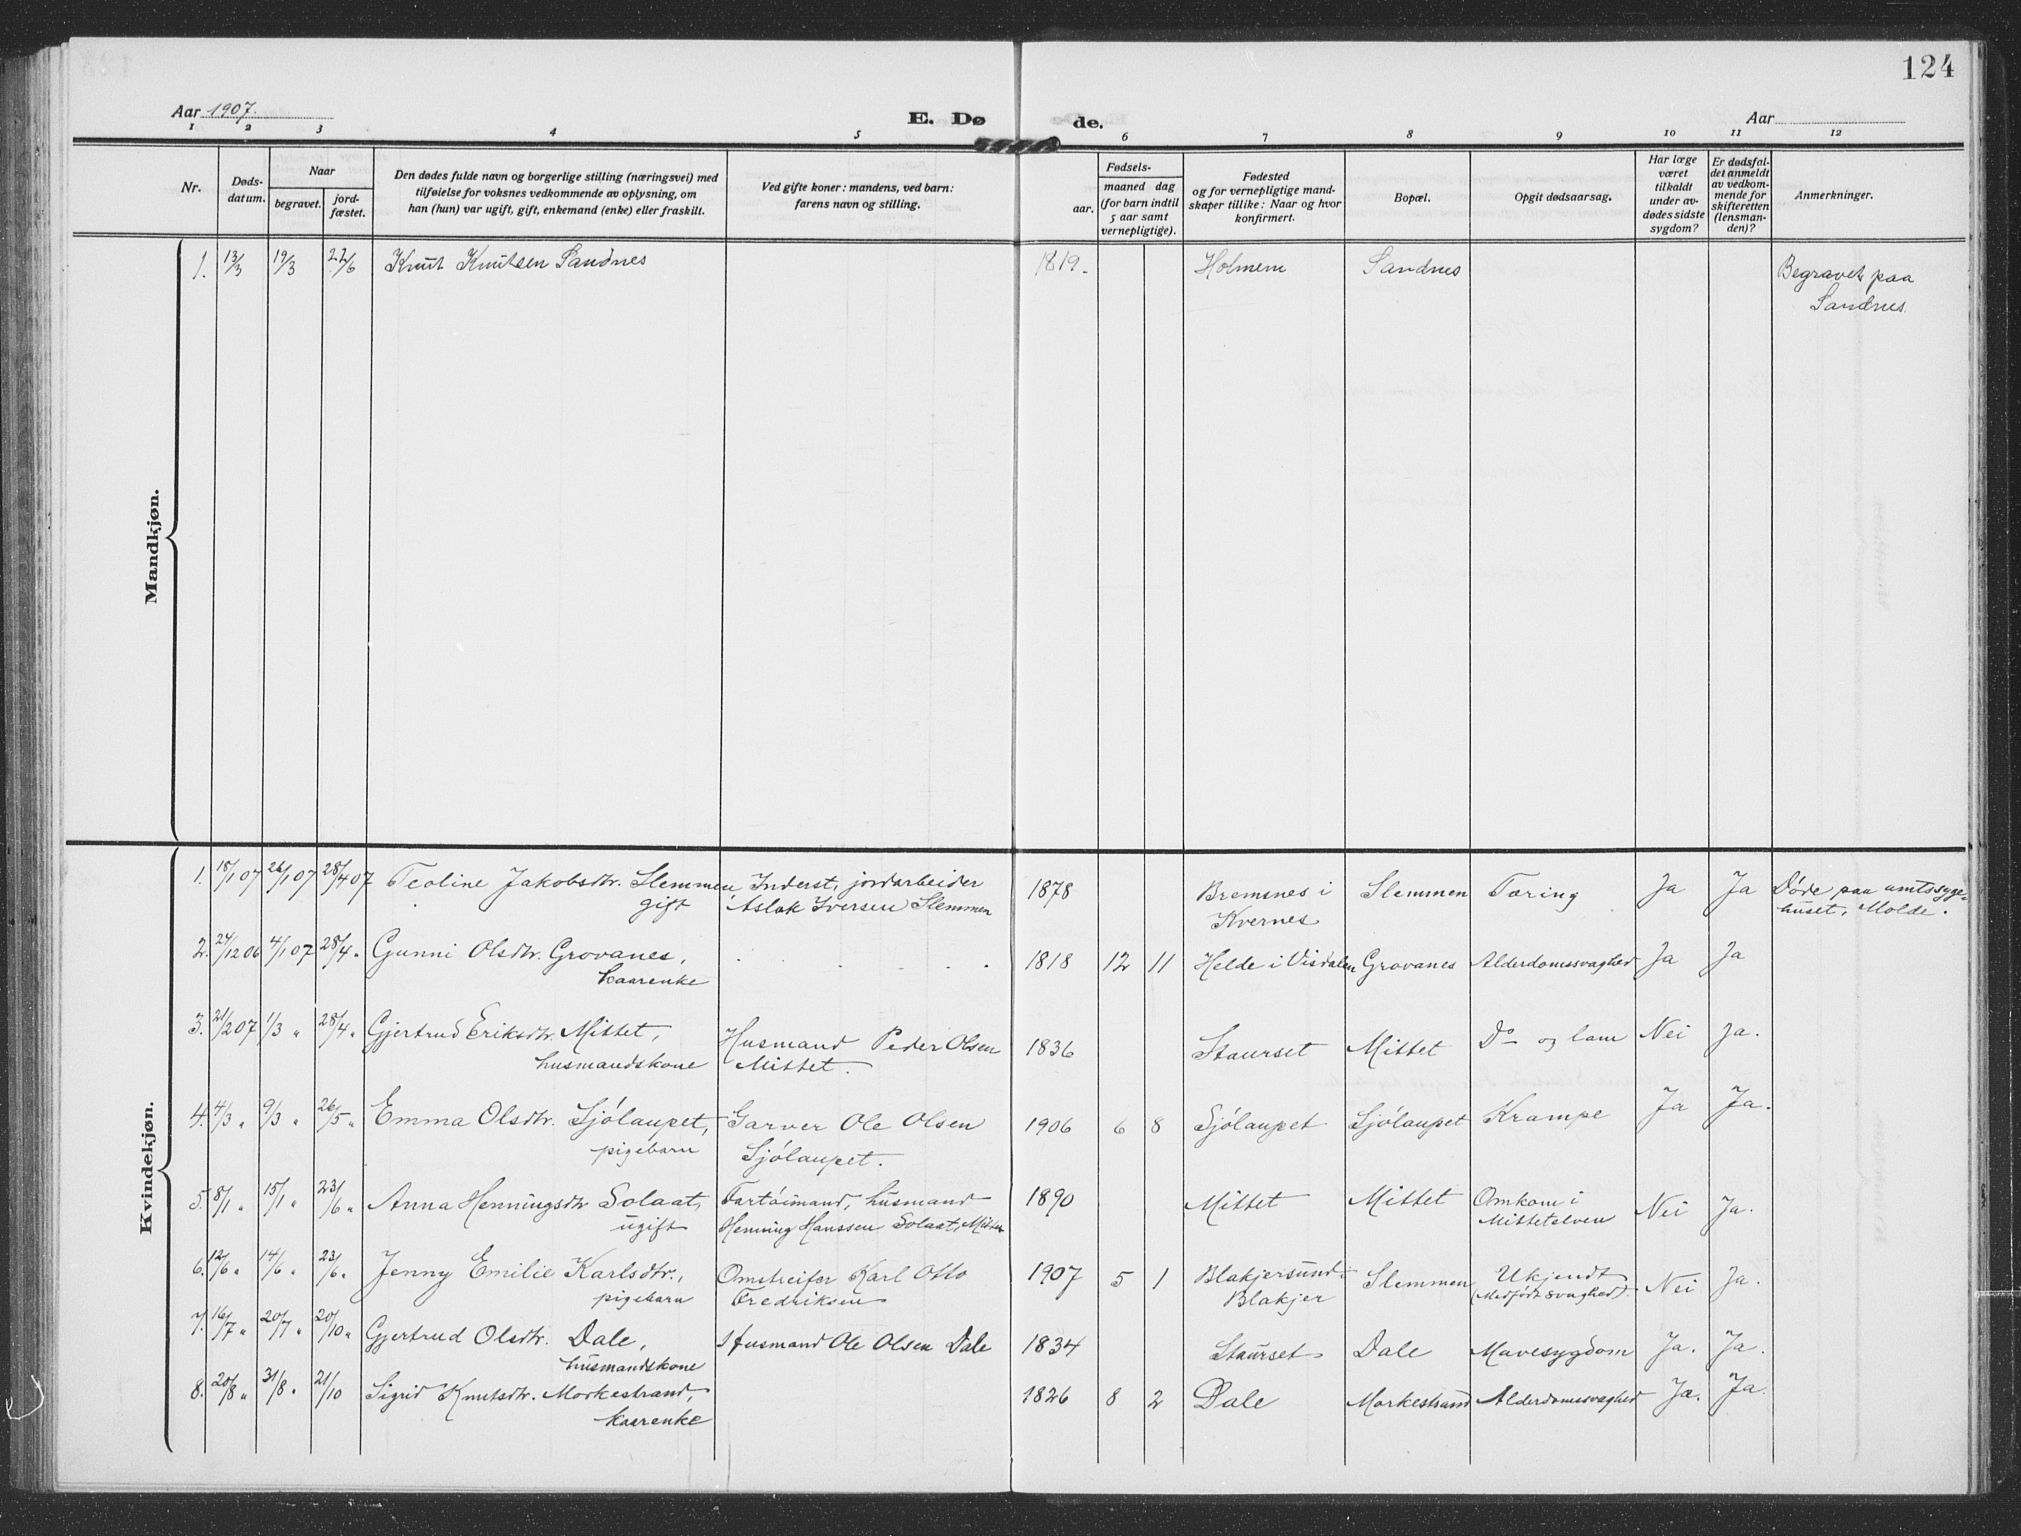 124
Aar 1907.
E. Døde.
Aar
1 2 3 4 5 6 7 8 9 10 11 12
Nr.
Døds-
datum.
Naar
begravet.
jord-
fæstet.
Den dødes fulde navn og borgerlige stilling (næringsvei) med
tilføielse for voksnes vedkommende av oplysning, om
han (hun) var ugift, gift, enkemand (enke) eller fraskilt.
Ved gifte koner: mandens, ved barn:
farens navn og stilling.
Fødsels-
aar.
maaned dag
(for barn indtil
5 aar samt
vernepligtige).
Fødested
og for vernepligtige mand-
skaper tillike: Naar og hvor
konfirmert.
Bopæl.
Opgit dødsaarsag.
Har læge
været
tilkaldt
under av-
dødes sidste
sygdom?
Er dødsfal-
det anmeldt
av vedkom-
mende for
skifteretten
(lensman-
den)?
Anmerkninger.
Mandkjøn.
1. 13/3 19/3 22/6 Knut Knutsen Sandnes 1819. Holmem Sandnes Begravet paa
Sandnes.
Kvindekjøn.
1. 18/1 07 26/1 07 28/4 07 Teoline Jakobsdtr. Slemmen Inderst, jordarbeider 1878 Bremsnes i Slemmen Tæring Ja Ja Døde paa amtssyge-
gift Aslak Iversen Slemmen Kvernes huset, Molde.
2. 24/12 06 4/1 07 28/4 " Gunni Olsdtr. Grovanes, 1818 12 11 Helde i Visdalen Grovanes Alderdomssvaghed Ja Ja
kaarenke
3. 21/2 07 1/3 " 28/4 " Gjertrud Eriksdtr. Mittet, Husmand Peder Olsen 1836 Staurset Mittet Do og lam Nei Ja.
husmandskone Mittet.
4. 4/3 " 9/3 " 26/5 " Emma Olsdtr. Sjölaupet, Garver Ole Olsen 1906 6 8 Sjölaupet Sjölaupet Krampe Ja Ja.
pigebarn Sjölaupet.
5. 8/1 " 15/1 " 23/6 " Anna Henningsdtr Solaat, Fartöimand, husmand 1890 Mittet Mittet Omkom i Nei Ja.
ugift Henning Hanssen Solaat, Mittet Mittetelven
6. 12/6 " 14/6 " 23/6 " Jenny Emilie Karlsdtr., Omstreifer Karl Otto 1907 5 1 Blakjersund- Slemmen Ukjendt Nei Ja.
pigebarn Fredriksen Blakjer (Medfödt svaghed).
7. 16/7 " 20/7 " 20/10 " Gjertrud Olsdtr. Dale, Husmand Ole Olsen Dale 1834 Staurset Dale Mavesygdom Ja. Ja.
husmandskone
8. 20/8 " 31/8 " 21/10 Sigrid Knutsdtr. Morkestrand, 1826 8 2 Dale Morkestrand Alderdomssvaghed Ja. Ja.
kaarenke